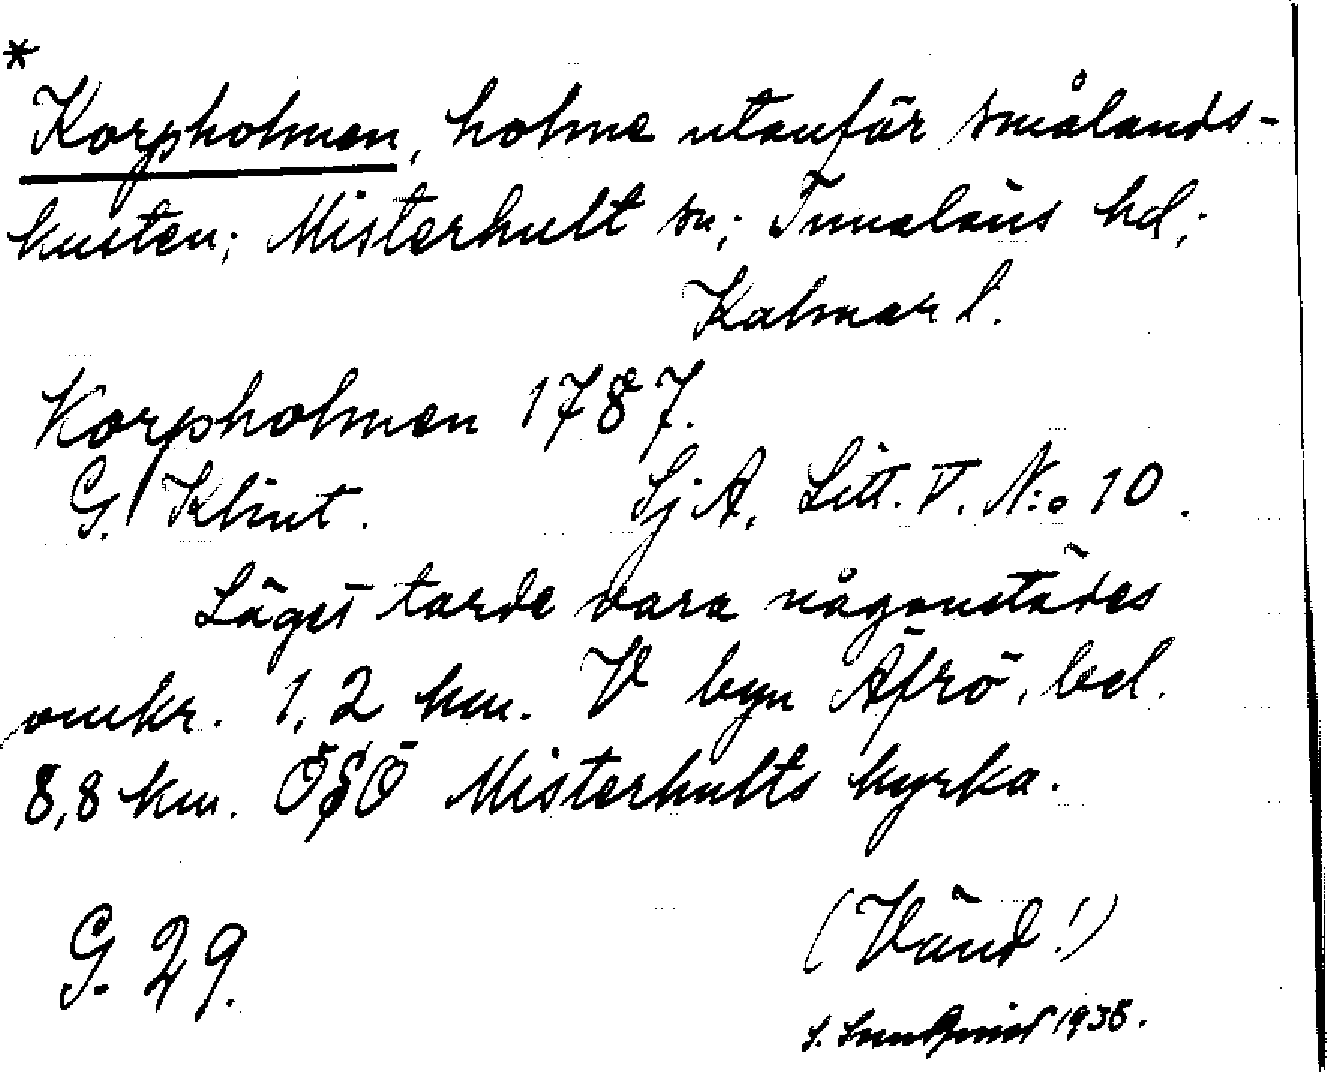 *
Korpholmen, holme utanför smålands-
kusten; Misterhult sn; Tunaläns hd;
Kalmar l.
Korpholmen 1787.
G. Klint. Sj. A. Litt. V. N:o 10.
Läget torde vara någonstädes
omkr. 1,2 km. V byn Äfrö, bel.
8,8 km. ÖSÖ Misterhults kyrka.
(Vänd!)
G. 29.
1938.